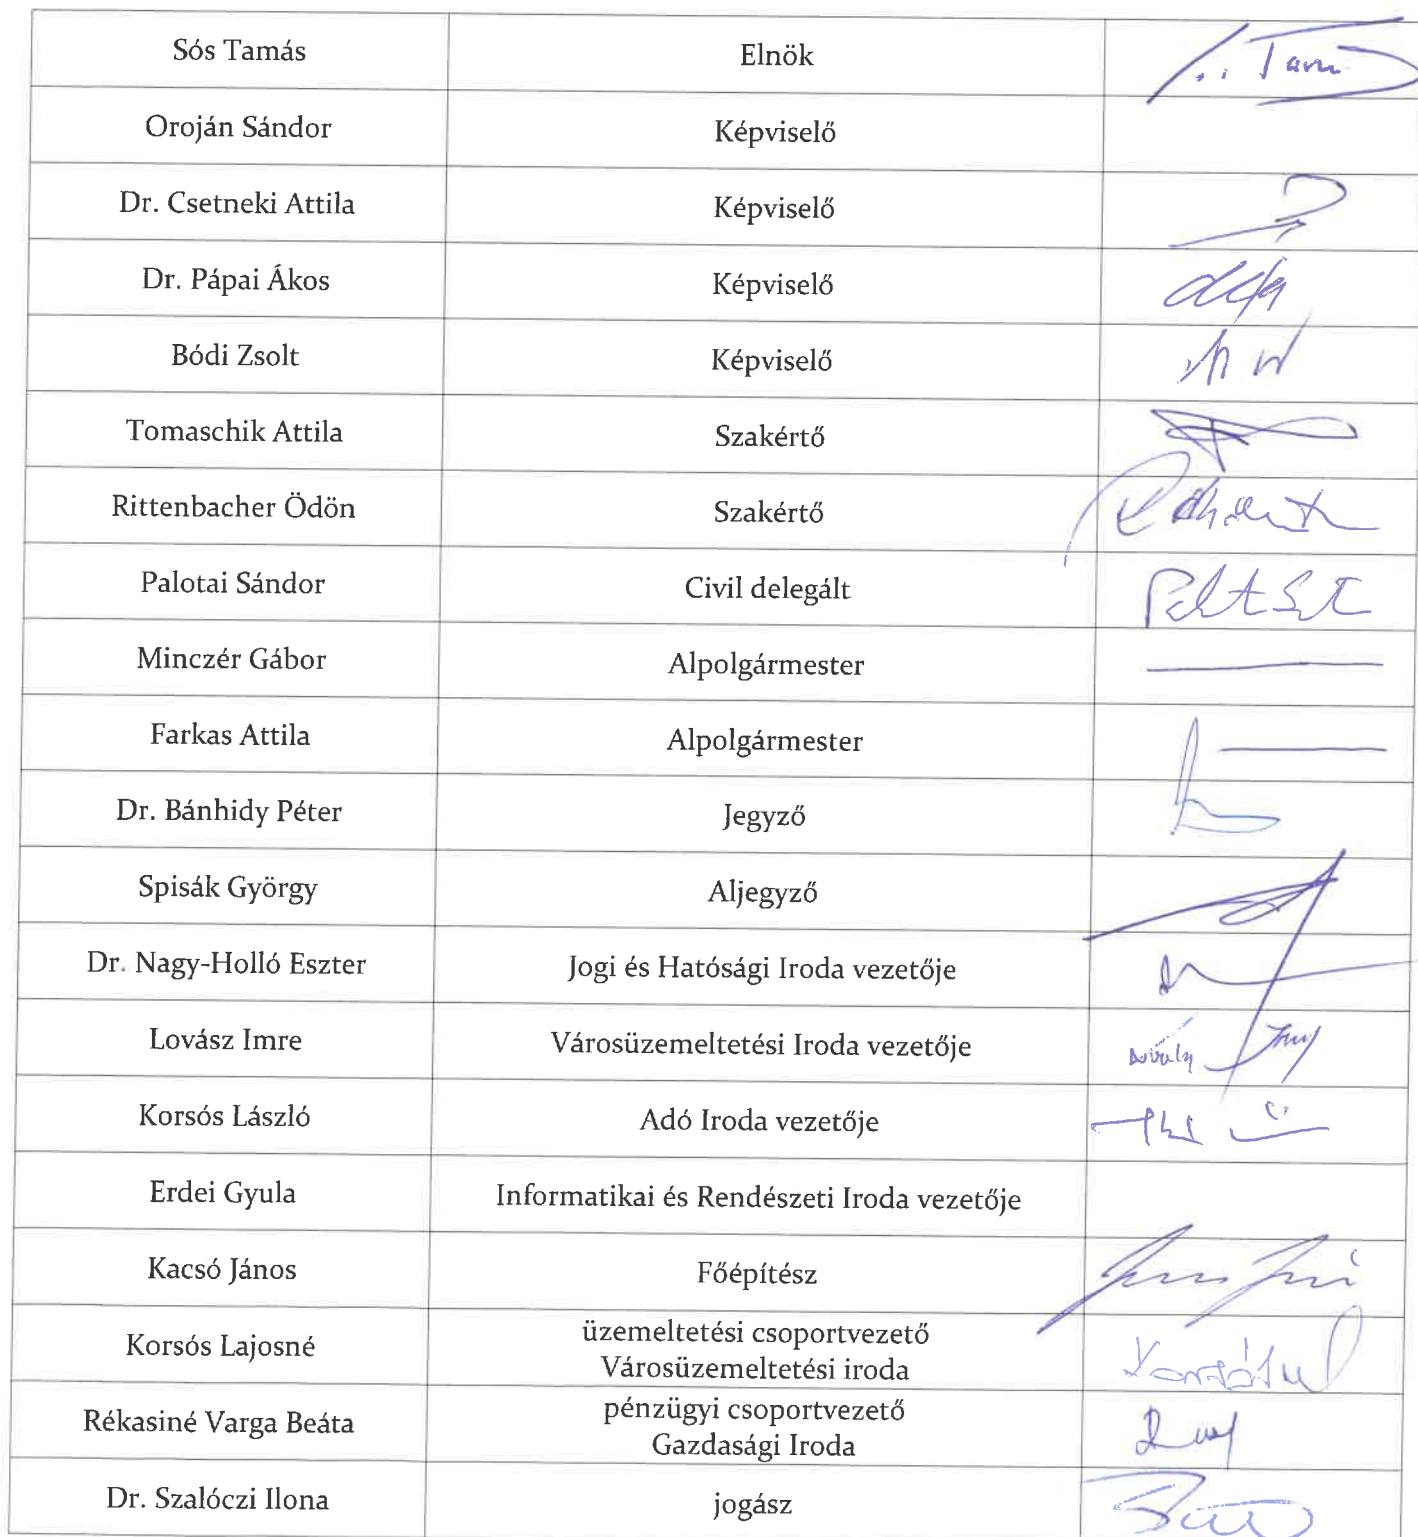 Sós Tamás Elnök
Oroján Sándor Képviselő
Dr. Csetneki Attila Képviselő
Dr. Pápai Ákos Képviselő
Bódi Zsolt Képviselő
Tomaschik Attila Szakértő
Rittenbacher Ödön Szakértő
Palotai Sándor Civil delegált
Minczér Gábor Alpolgármester
Farkas Attila Alpolgármester
Dr. Bánhidy Péter Jegyző
Spisák György Aljegyző
Dr. Nagy-Holló Eszter Jogi és Hatósági Iroda vezetője
Lovász Imre Városüzemeltetési Iroda vezetője
Korsós László Adó Iroda vezetője
Erdei Gyula Informatikai és Rendészeti Iroda vezetője
Kacsó János Főépítész
Korsós Lajosné üzemeltetési csoportvezető
Városüzemeltetési iroda
Rékasiné Varga Beáta pénzügyi csoportvezető
Gazdasági Iroda
Dr. Szalóczi Ilona jogász